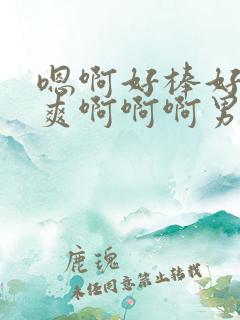 嗯啊好棒好
爽啊啊啊男
鹿瑰
未经同意禁止转载